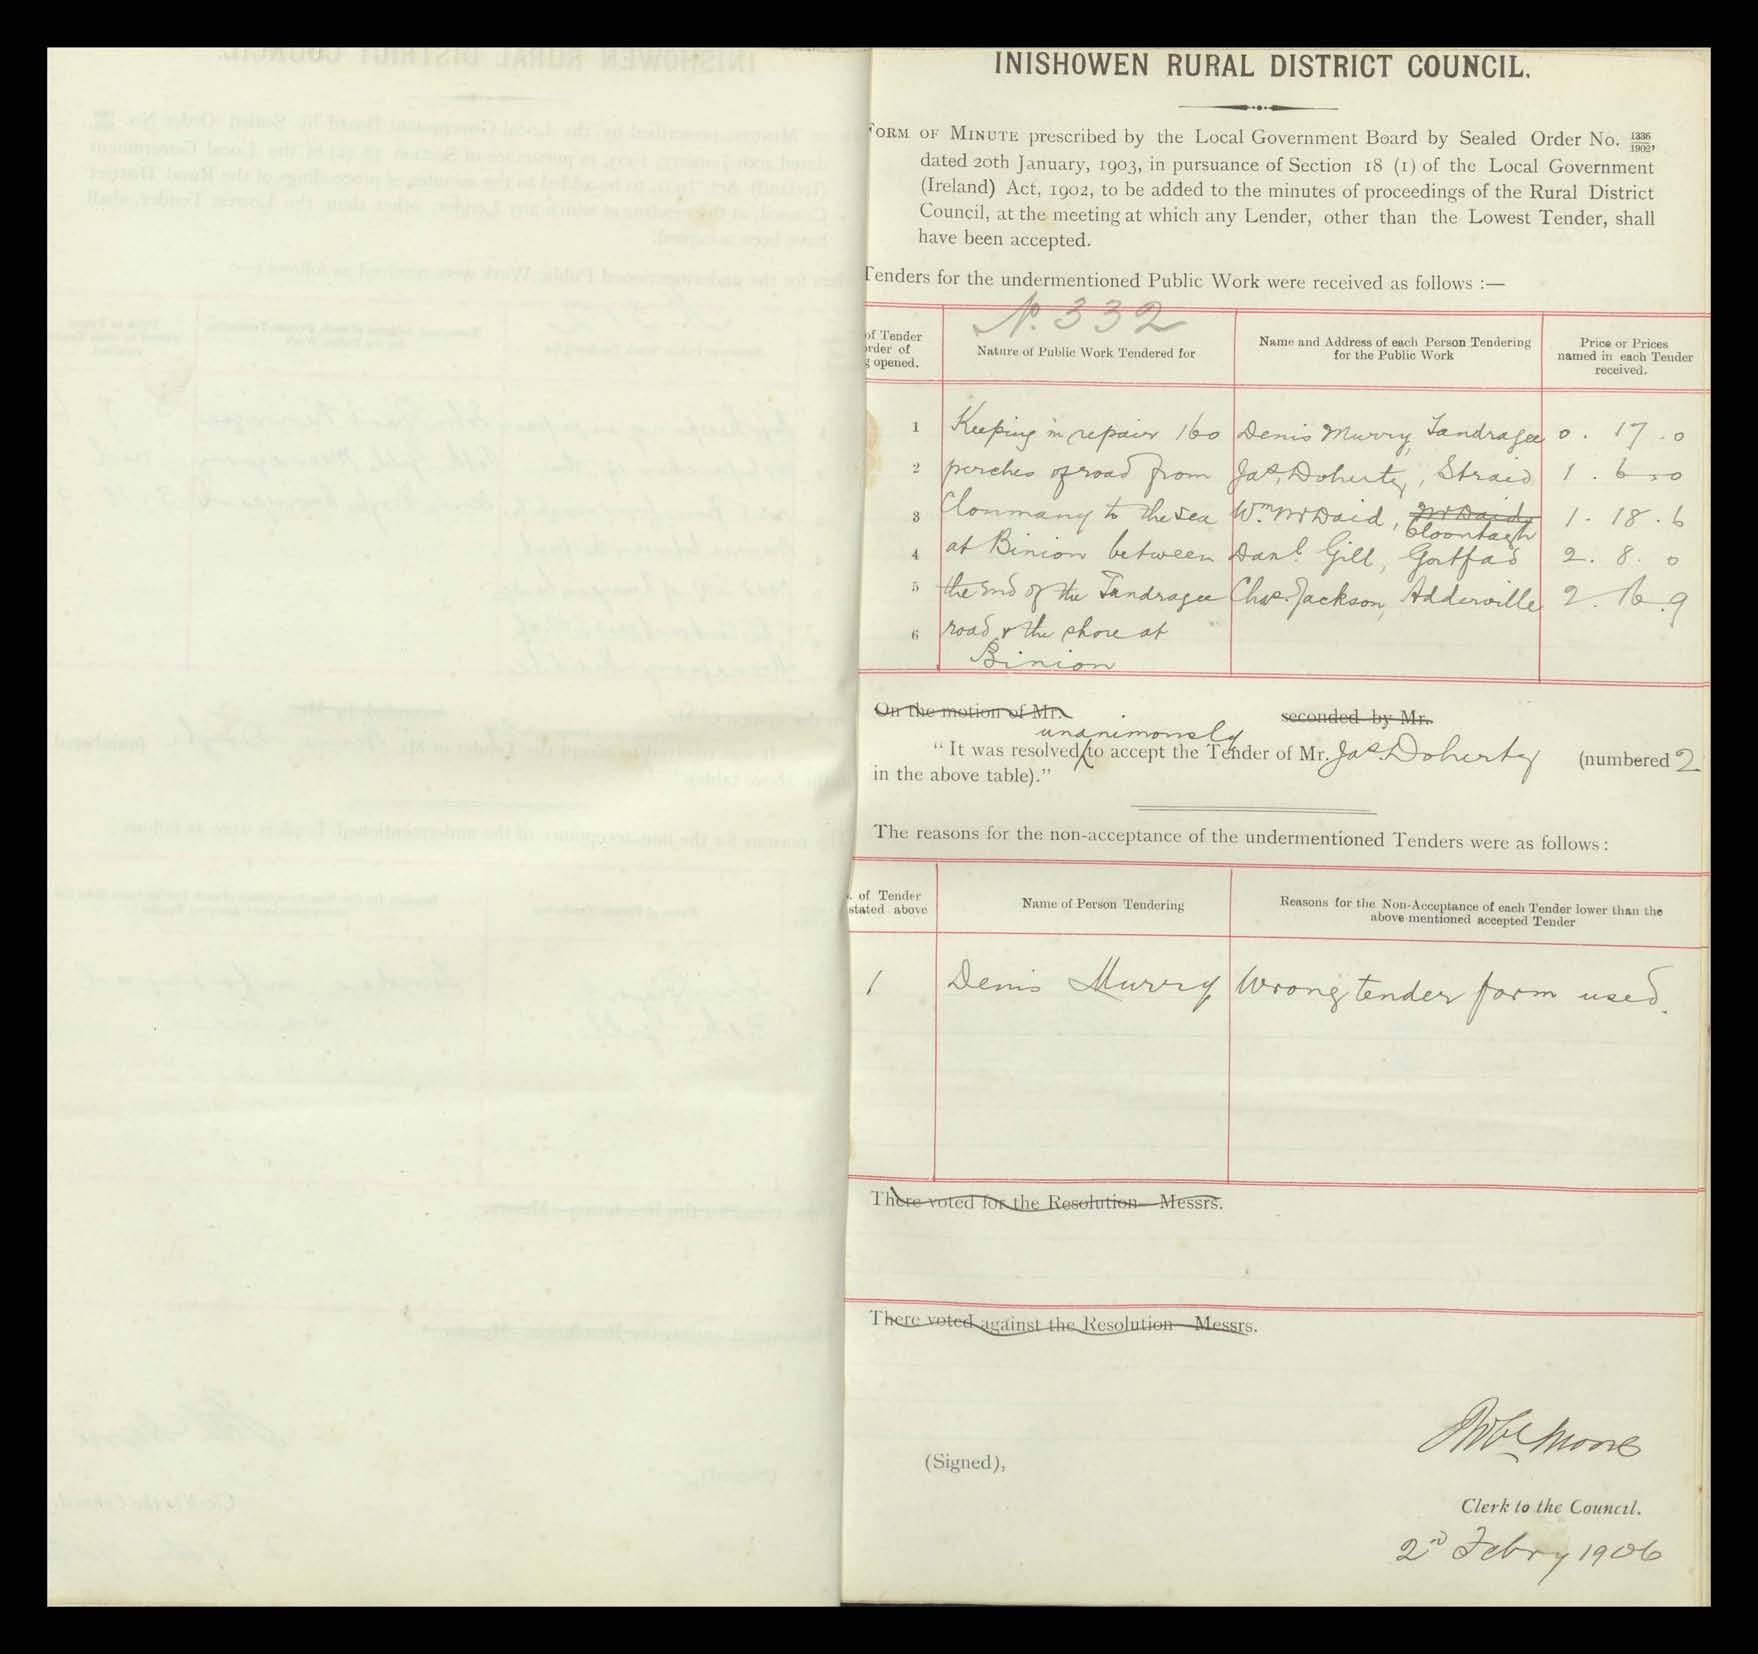 INISHOWEN RURAL DISTRICT COUNCIL.
FORM OF MINUTE prescribed by the Local Government Board by Sealed Order No. 1336/1902,
dated 20th January, 1903, in pursuance of Section 18 (1) of the Local Government
(Ireland) Act, 1902, to be added to the minutes of proceedings of the Rural District
Council, at the meeting at which any Lender, other than the Lowest Tender, shall
have been accepted.
Tenders for the undermentioned Public Work were received as follows :—
No. 332
of Tender
order of
g opened.
Nature of Public Work Tendered for
Name and Address of each Person Tendering
for the Public Work
Price or Prices
named in each Tender
received.
1 Keeping in repair 160 Denis Murry, Tandragee 0 . 17 . 0
2 perches of road from Jas. Doherty, Straid 1 . 6 . 0
3 Clonmany to the sea Wm. McDaid, McDaid Cloontagh 1 . 18 . 6
4 at Binion between Danl. Gill, Gortfad 2 . 8 . 0
5 the end of the Tandragee Chas. Jackson, Adderville 2 . 16 . 9
6 road & the shore at
Binion
On the motion of Mr. seconded by Mr.
unanimously
"It was resolved to accept the Tender of Mr. Jas. Doherty (numbered 2
in the above table)."
The reasons for the non-acceptance of the undermentioned Tenders were as follows :
. of Tender
stated above
Name of Person Tendering
Reasons for the Non-Acceptance of each Tender lower than the
above-mentioned accepted Tender
1 Denis Murry Wrong tender form used.
There voted for the Resolution—Messrs.
There voted against the Resolution—Messrs.
(Signed),
Moore
Clerk to the Council.
2nd Febry 1906